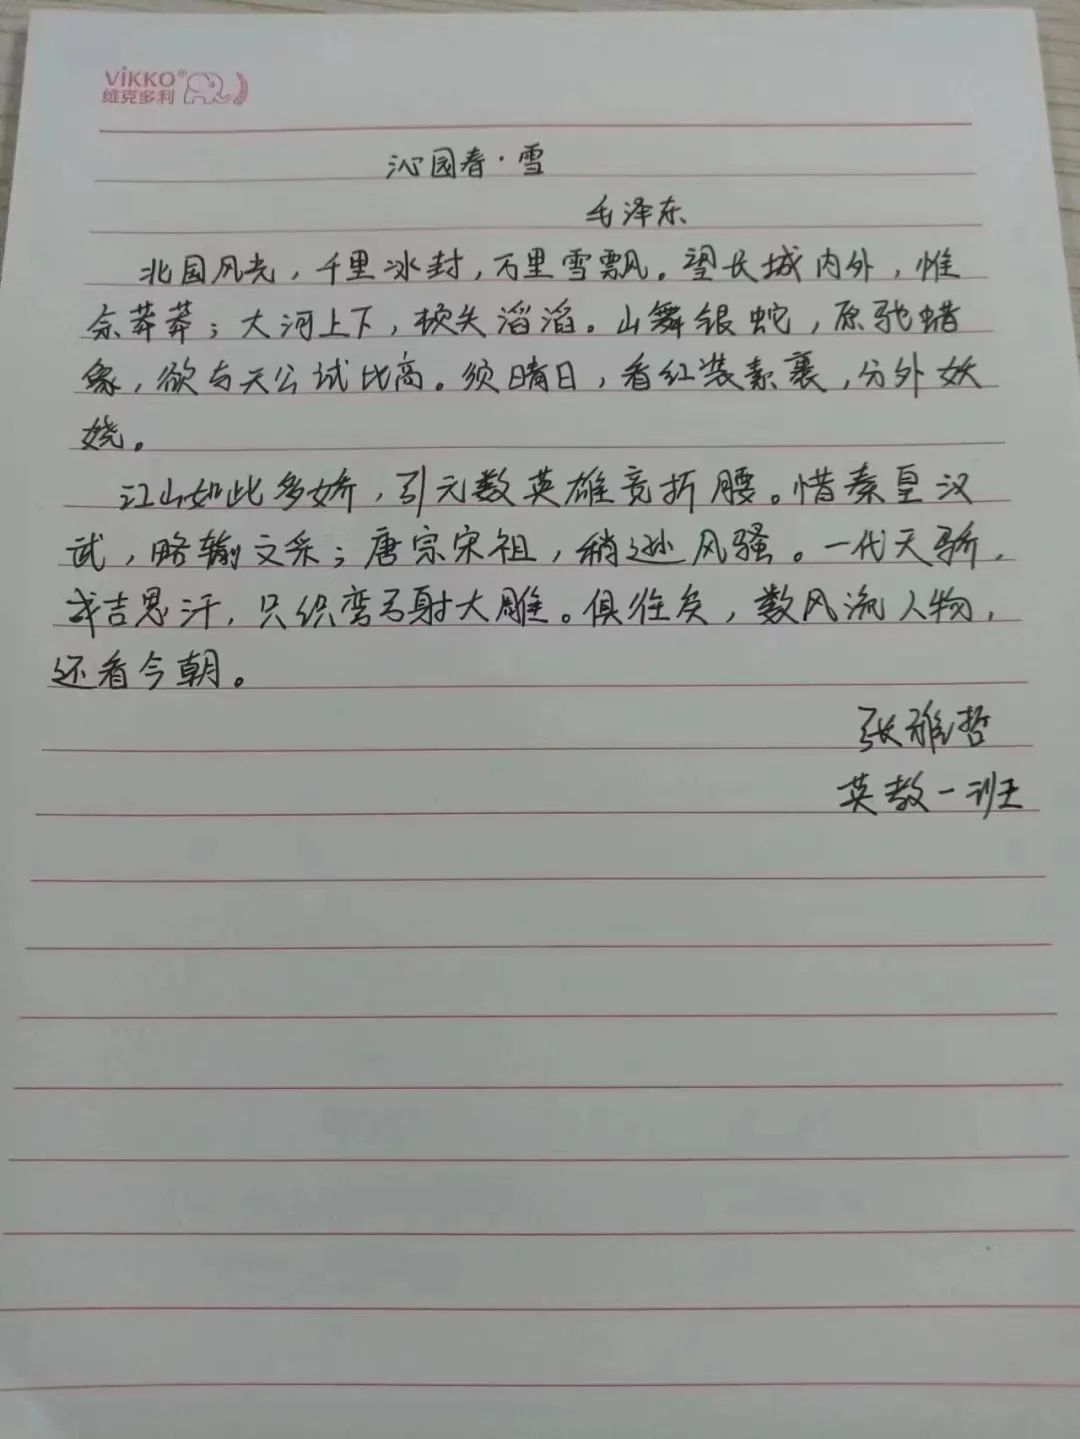 ViKKO®
维克多利
沁园春·雪
毛泽东
北国风光，千里冰封，万里雪飘。望长城内外，惟
余莽莽；大河上下，顿失滔滔。山舞银蛇，原驰蜡
象，欲与天公试比高。须晴日，看红装素裹，分外妖
娆。
江山如此多娇，引无数英雄竞折腰。惜秦皇汉
武，略输文采；唐宗宋祖，稍逊风骚。一代天骄，
成吉思汗，只织弯弓射大雕。俱往矣，数风流人物，
还看今朝。
张雅哲
英教一班